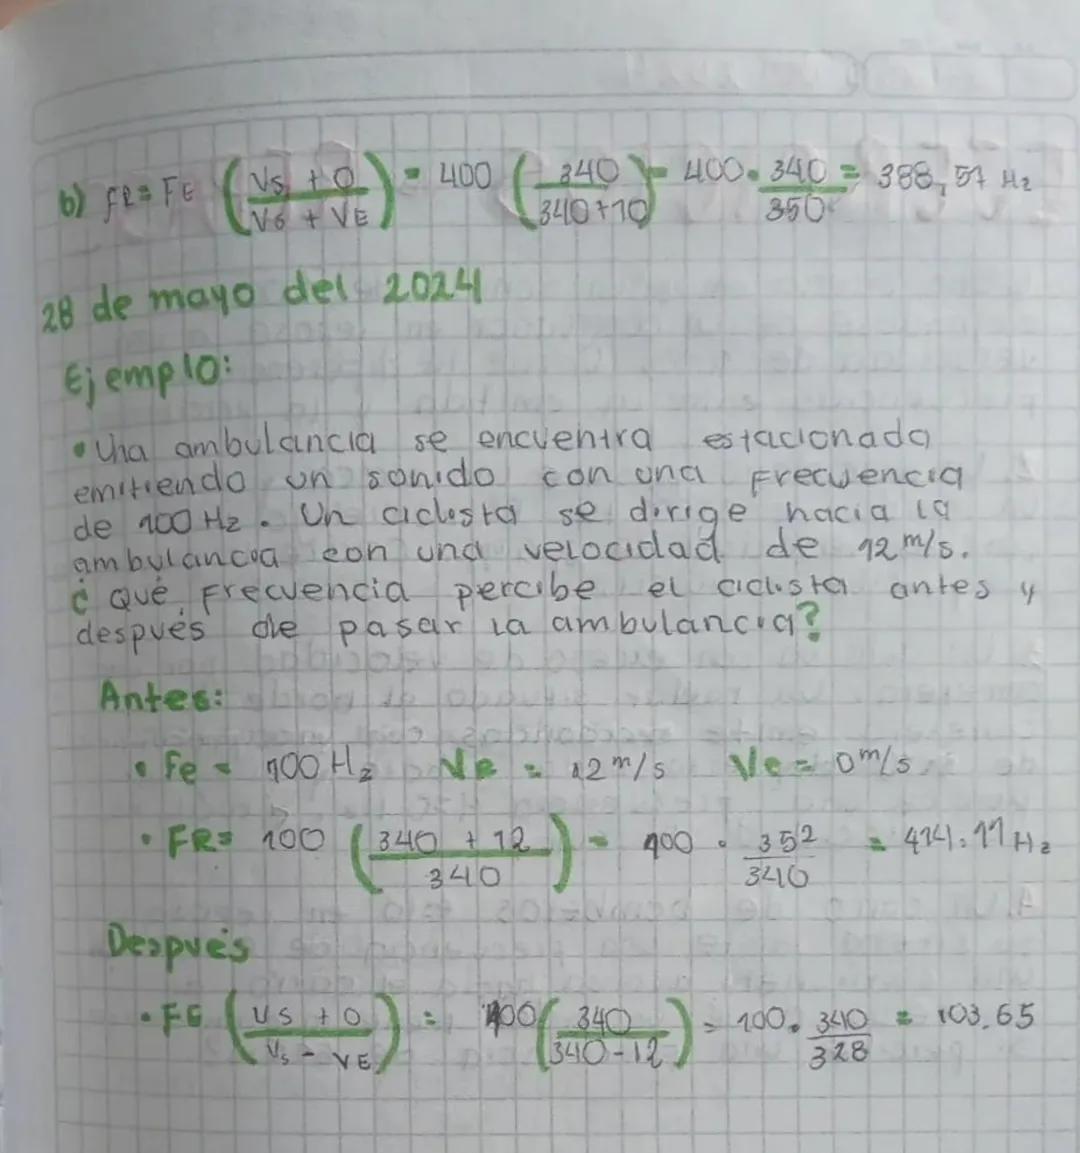 b) FR = FE (Vs + 0 / Vs + VE) = 400 (340 / 340+10) = 400 . 340 / 350 = 388,57 Hz
28 de mayo del 2024
Ejemplo:
• Una ambulancia se encuentra estacionada
emitiendo un sonido con una frecuencia
de 100 Hz. Un ciclista se dirige hacia la
ambulancia con una velocidad de 12 m/s.
¿ Qué frecuencia percibe el ciclista antes y
después de pasar la ambulancia?
Antes:
• Fe = 100 Hz VR = 12 m/s Ve = 0 m/s
• FR = 100 (340 + 12 / 340) = 400 . 352 / 340 = 414.11 Hz
Después
• FE (Vs + 0 / Vs - VE) = 100 (340 / 340-12) = 100 . 340 / 328 = 103.65